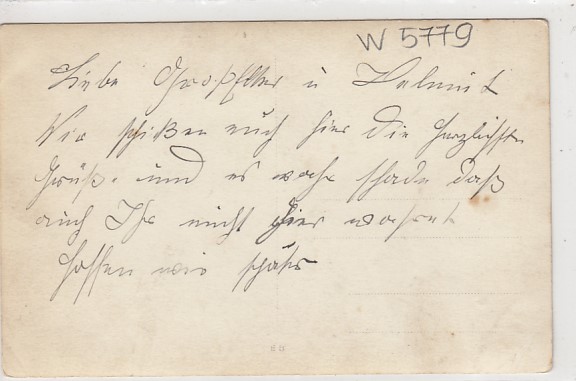 W 5779
Liebe Großeltern u Helmut
Wir schicken euch hier die herzlichsten
Grüße. und es wahr schade daß
auch Ihr nicht hier wahret
hoffen wir später